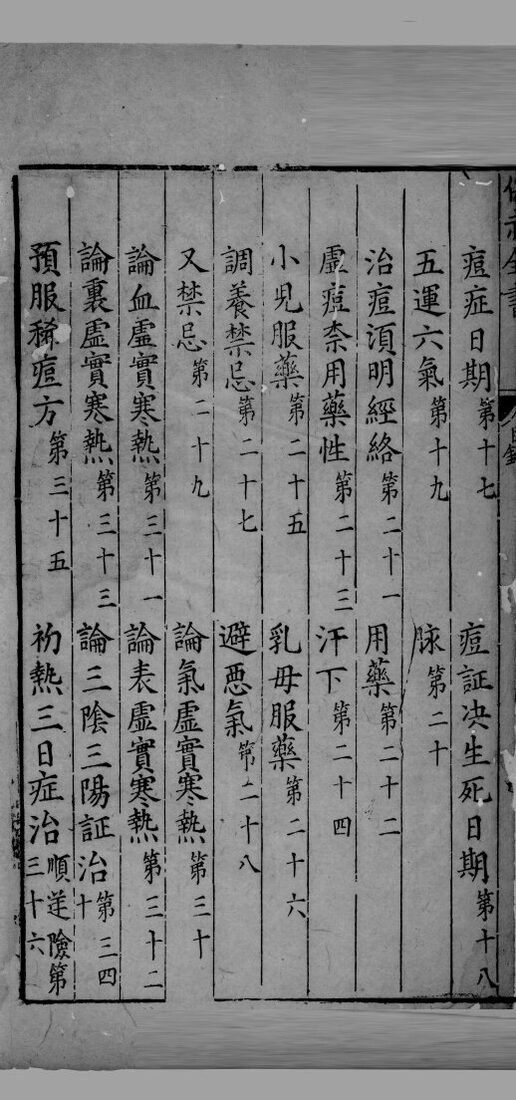 保赤全書 目錄
痘症日期第十七 痘証决生死日期第十八
五運六氣第十九 脉第二十
治痘湏明經絡第二十一 用藥第二十二
虛痘柰用藥性第二十三 汗下第二十四
小兒服藥第二十五 乳母服藥第二十六
調養禁忌第二十七 避惡氣第二十八
又禁忌第二十九 論氣虛實寒熱第三十
論血虛實寒熱第三十一 論表虛實寒熱第三十二
論裏虛實寒熱第三十三 論三陰三陽証治第三十四
預服稀痘方第三十五 初熱三日症治順逆險第三十六